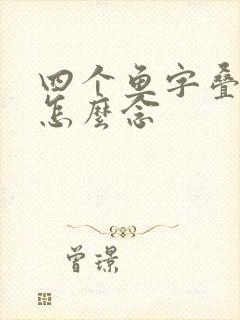 四个鱼字叠
怎麼念
曾璟